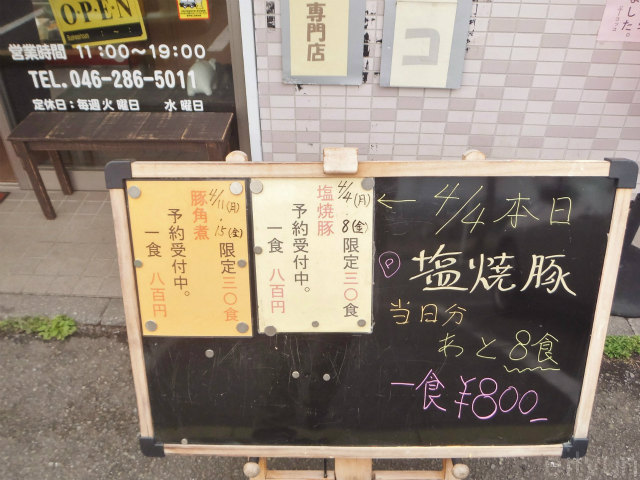 OPEN
営業時間 11:00〜19:00
TEL.046-286-5011
定休日：毎週火曜日 水曜日
専門店
コ
した。
4/4本日
塩焼豚
当日分
あと8食
一食¥800
4/4(月)、8(金)
限定三〇食
塩焼豚
予約受付中。
一食 八百円
4/11(月)、15(金)
限定三〇食
豚角煮
予約受付中。
一食 八百円